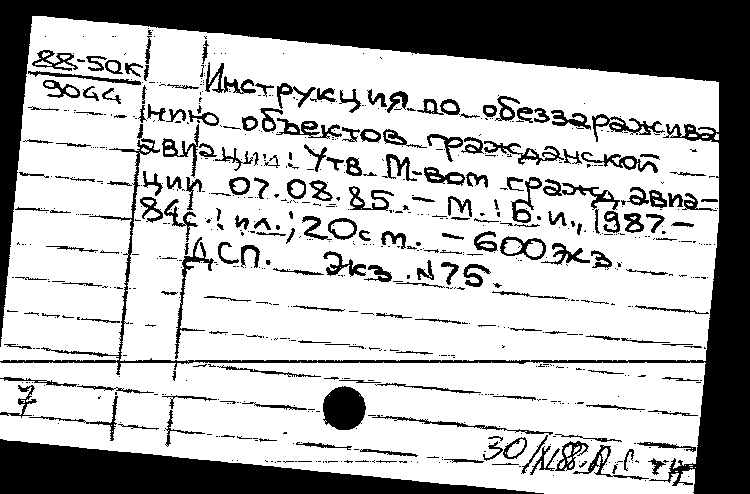 88-50к
9044
Инструкция по обеззаражива
нию объектов гражданской
авиации: Утв. М-вом гражд. авиа-
ции 07.08.85. - М.: Б.и., 1987. -
84с.: ил.; 20см. - 600экз.
ДСП. Экз. №75.
7
30/XI88.